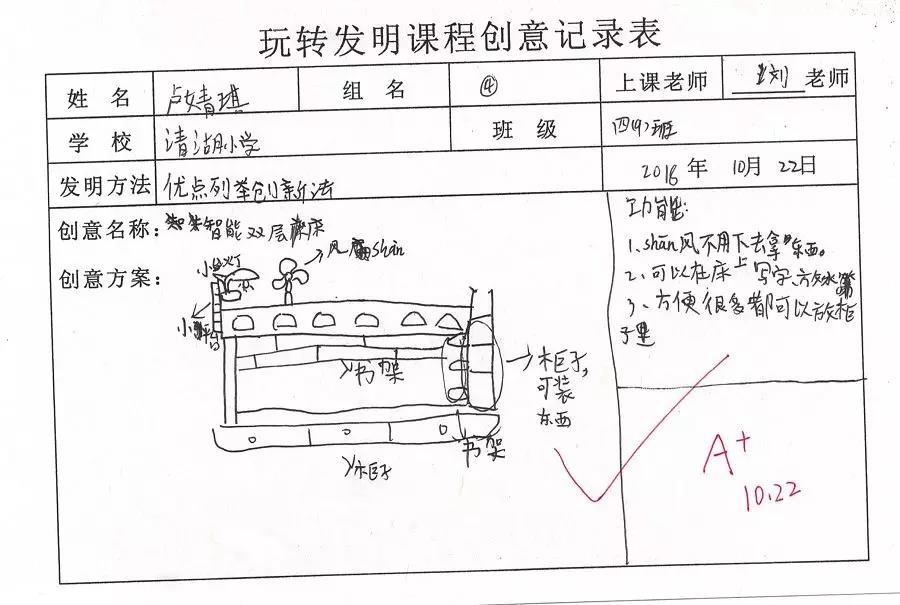 玩转发明课程创意记录表
姓名 卢婧琪 组名 ④ 上课老师 刘老师
学校 清湖小学 班级 四(4)班
发明方法 优点列举创新法 2016年 10月 22日
创意名称: 智能双层床
创意方案:
小灯
风shān
小平台
书架
柜子,
可装
东西
书架
柜子
功能:
1、shān风不用下去拿东西。
2、可以在床上写字、
3、方便很多都可以放柜
子里
A+
10.22